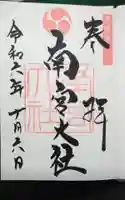 奉拝
南宮大社
令和六年十月六日